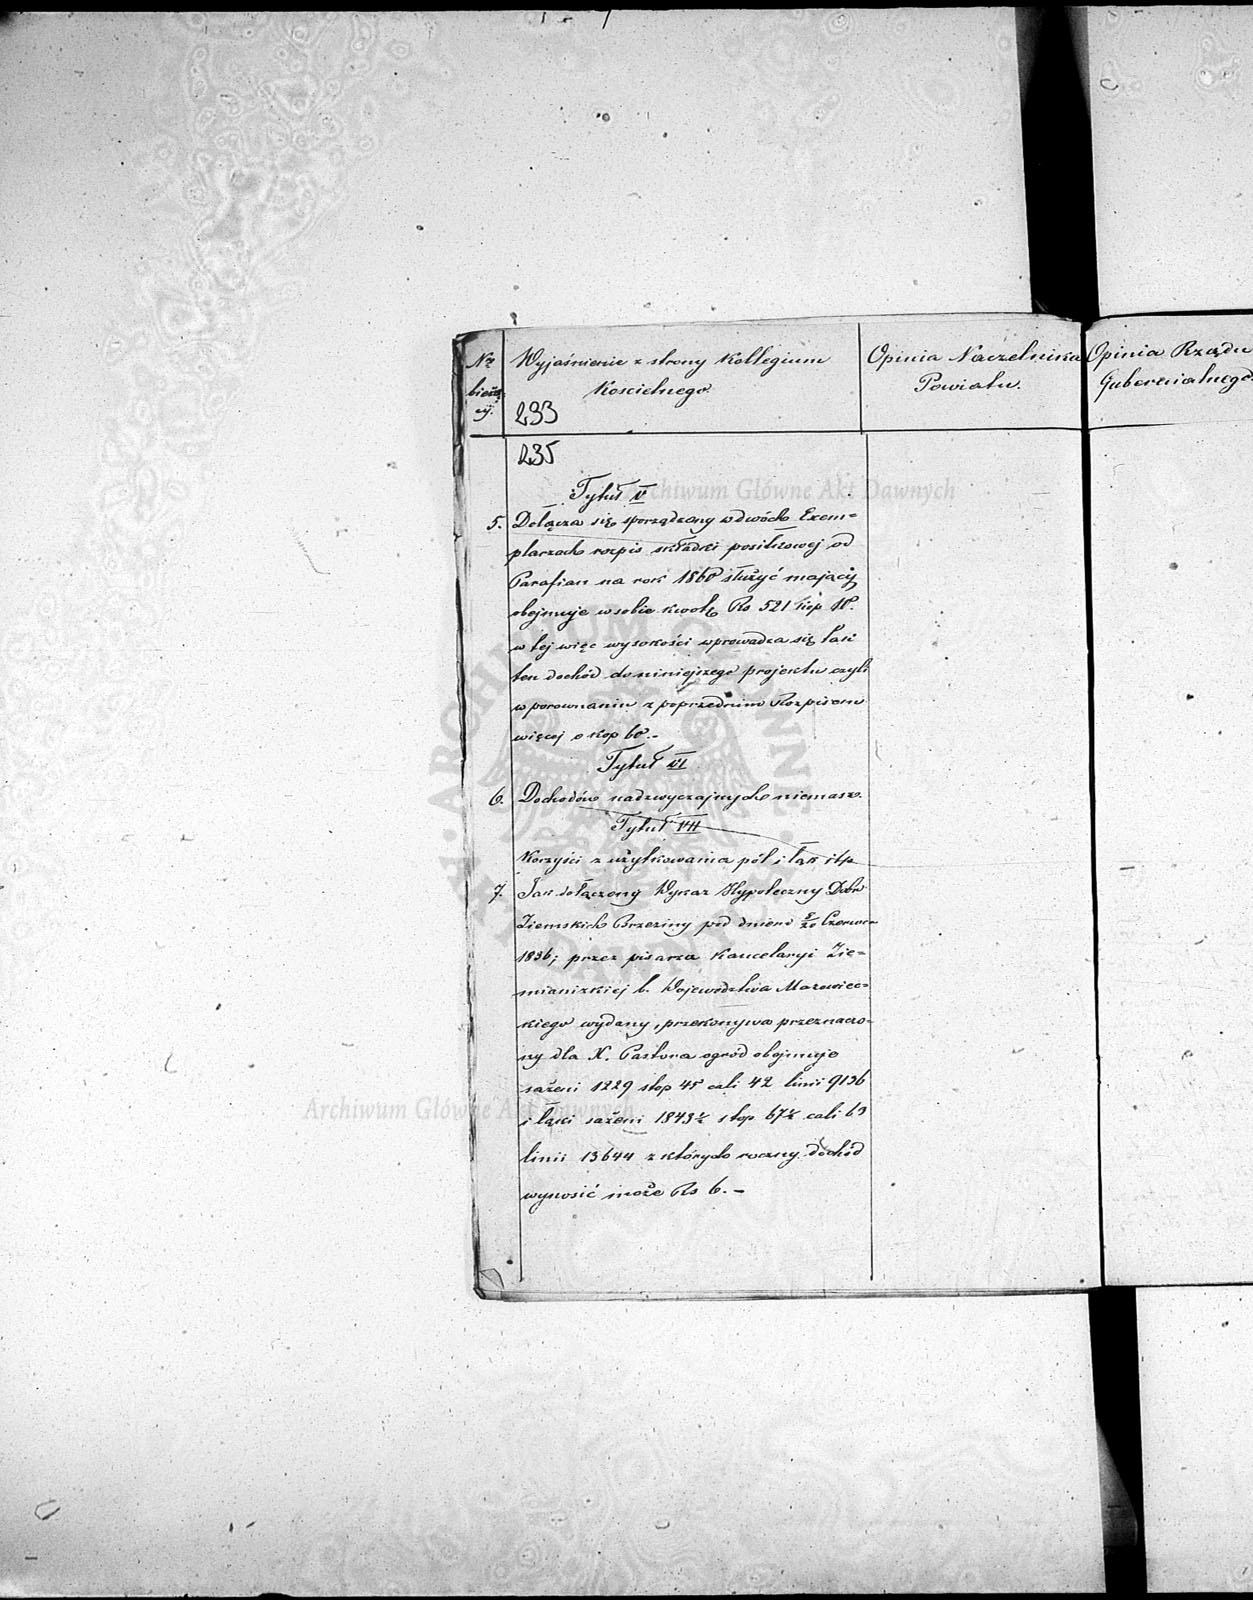 Nr bieżący.
Wyjaśnienie z strony Kollegium
Koscielnego.
Opinia Naczelnika
Powiatu.
Opinia Rządu
Gubernialnego.
233
235
Tytuł V
5. Dołącza się sporządzony w dwóch Exem=
plarzach rozpis składki positkowej od
Parafian na rok 1860 służyć mający
obejmuje w sobie kwotę Rs 521 kop
w tej więc wysokości wprowadza się tak
ten dochód do niniejszego projektu czyli
w porownaniu z poprzednim Rozpisem
więcej o kop 60.-
Tytuł VI
6. Dochodów nadzwyczajnych niemasz.
Tytuł VII
Korzyści z użytkowania pól i łąk itp
7. Jak dołączony Wykaz Hypoteczny Dobr
Ziemskich Brzeziny pod dniem 8/20 Czerwca
1836; przez pisarza Kancelaryi Zie=
mianskiej b. Wojewodztwa Mazowiec=
kiego wydany, przekonywa przeznaczo=
ny dla X. Pastora ogród obejmuje
sażeni 1229 stop 45 cali 42 linii 9136
i łąki sażeni 1843½ stop 67½ cali 63
linii 13644 z których roczny dochód
wynosić może Rs 6.-
Archiwum Główne Akt Dawnych
Archiwum Główne Akt Dawnych